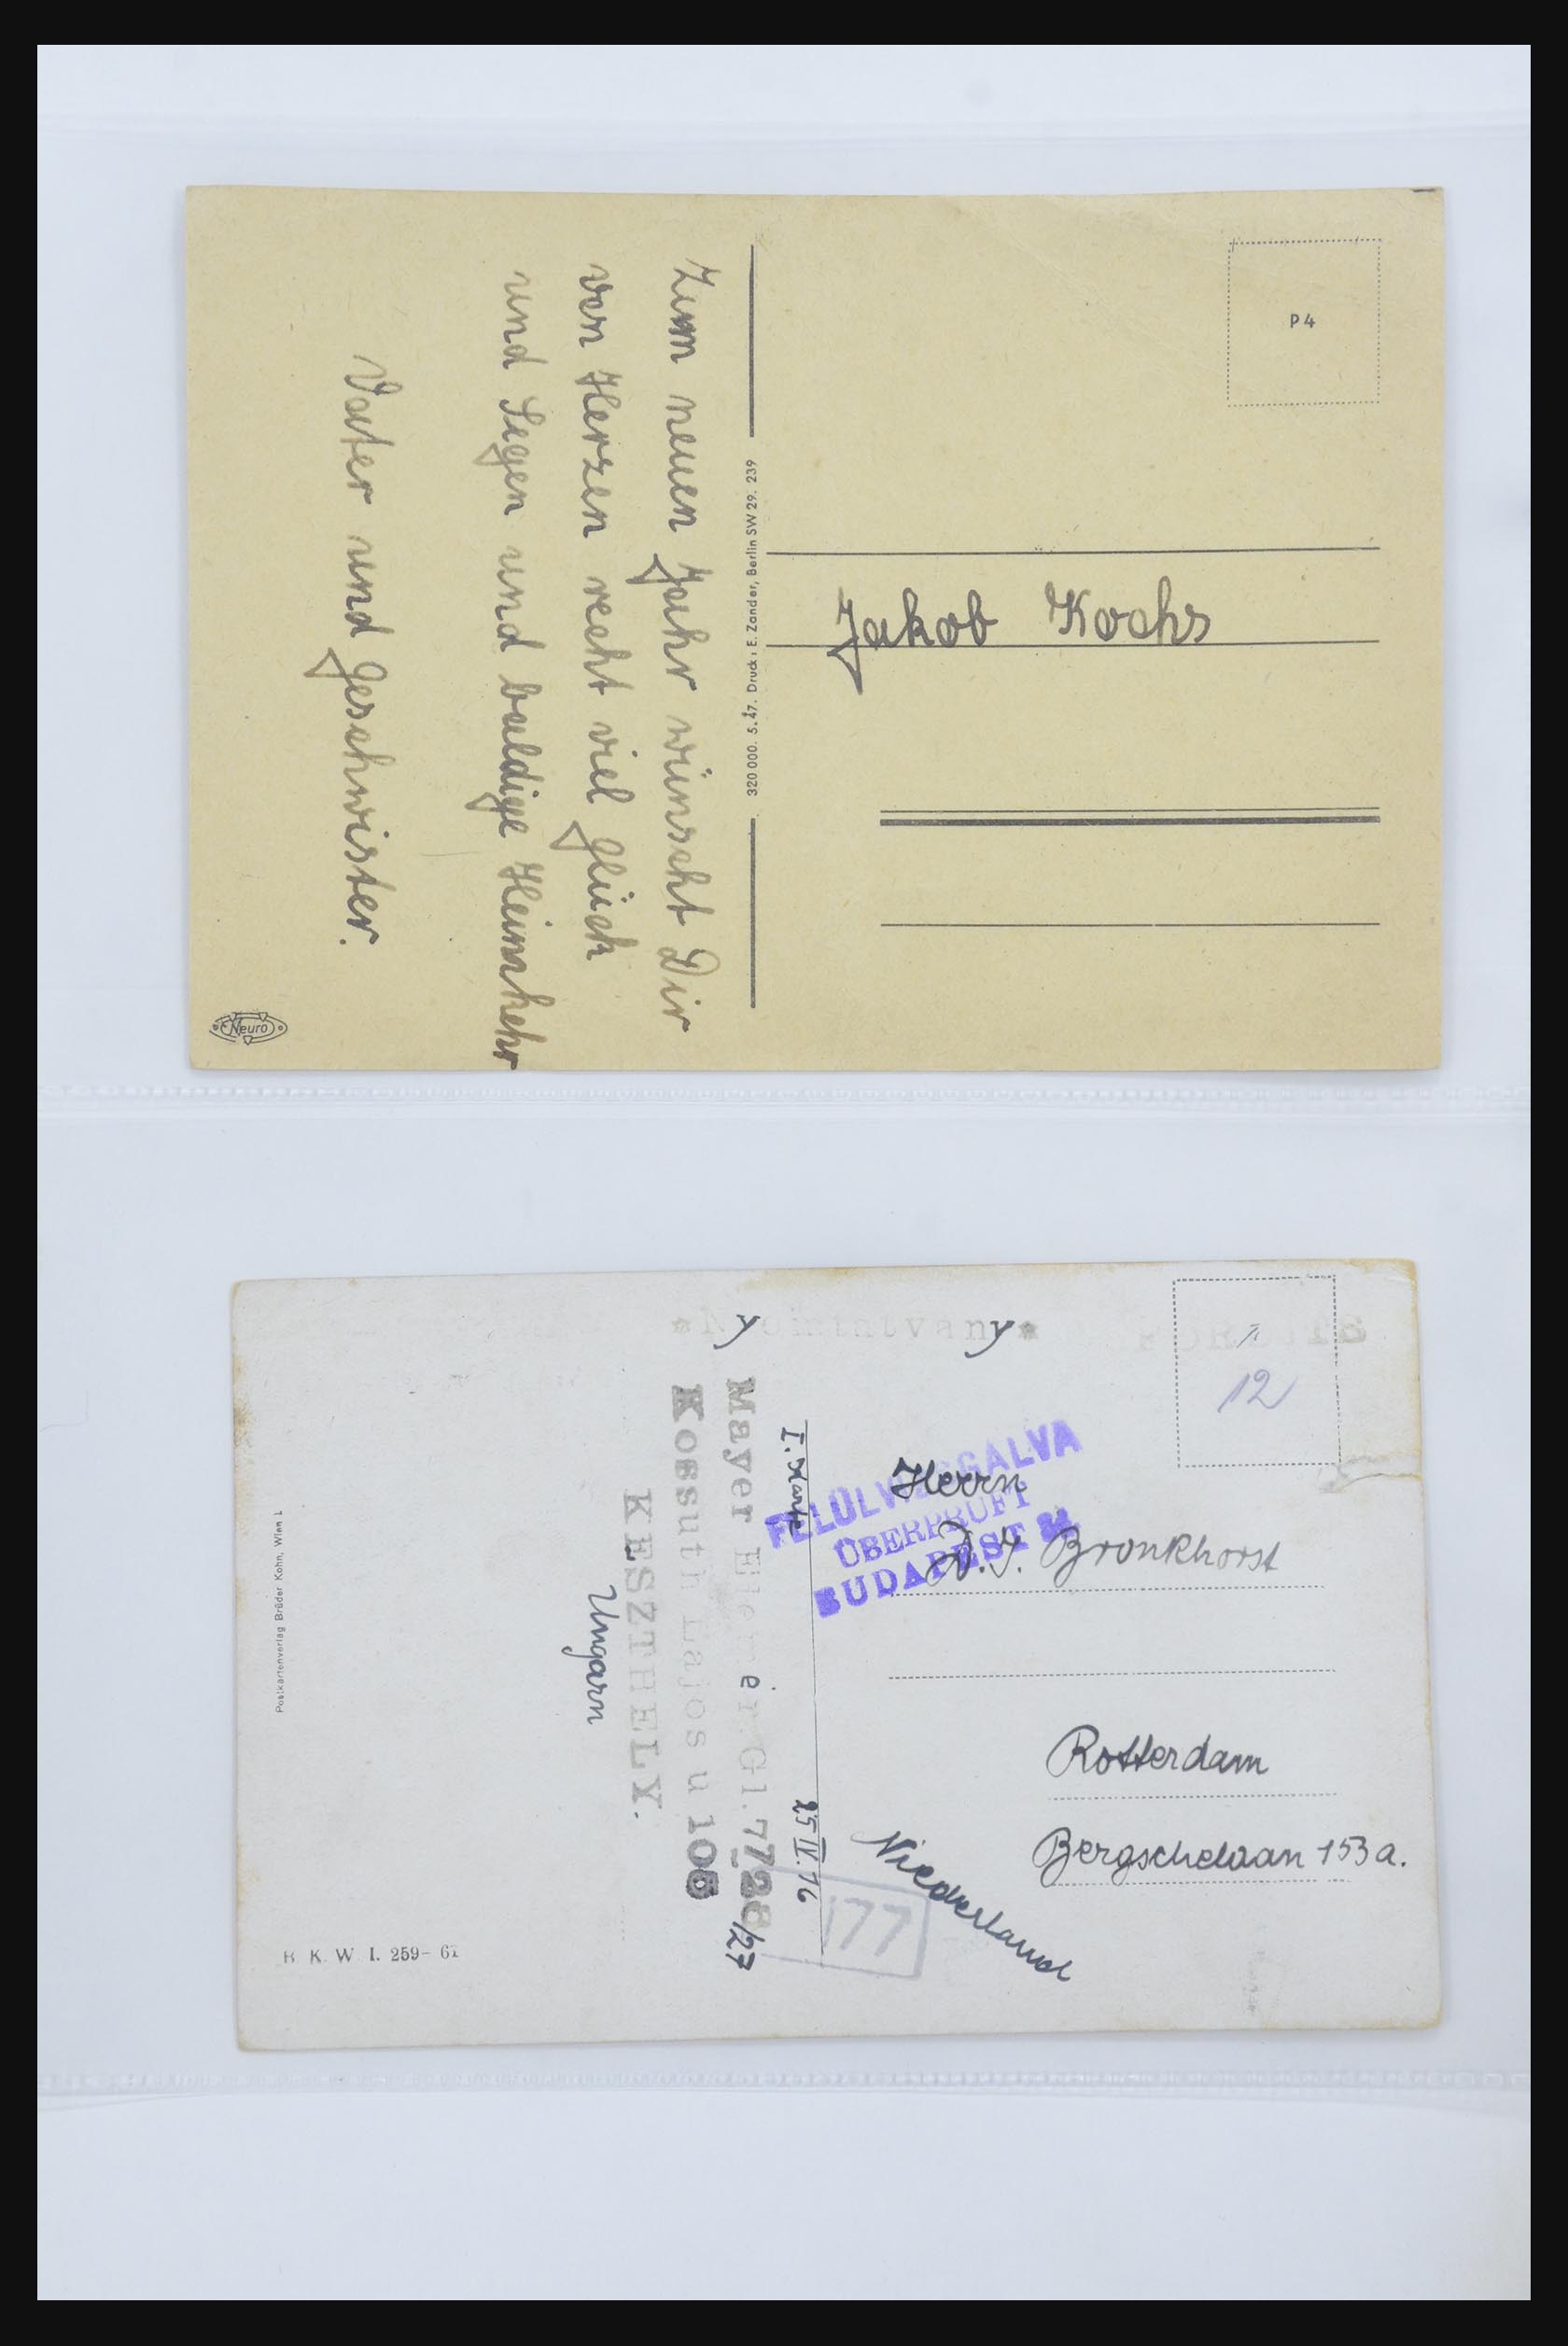 P4
Zum neuen Jahr wünscht Dir
von Herzen recht viel Glück
und Segen und baldige Heimkehr
Vater und Geschwister.
320 000. 5.47. Druck: E. Zander, Berlin SW 29. 239
Jakob Kochs
Neuro
12
*Nyomtatvány*
Mayer Elemér Gl.
Kossuth Lajos u 106
KESZTHELY.
Ungarn
I. Karte
FELÜLVIZSGALVA
ÜBERPRÜFT
BUDAPEST
Herrn
Bronkhorst
Rotterdam
Bergschelaan 153a.
Niederland
177
Postkartenverlag Brüder Kohn, Wien I.
B. K. W. I. 259-61